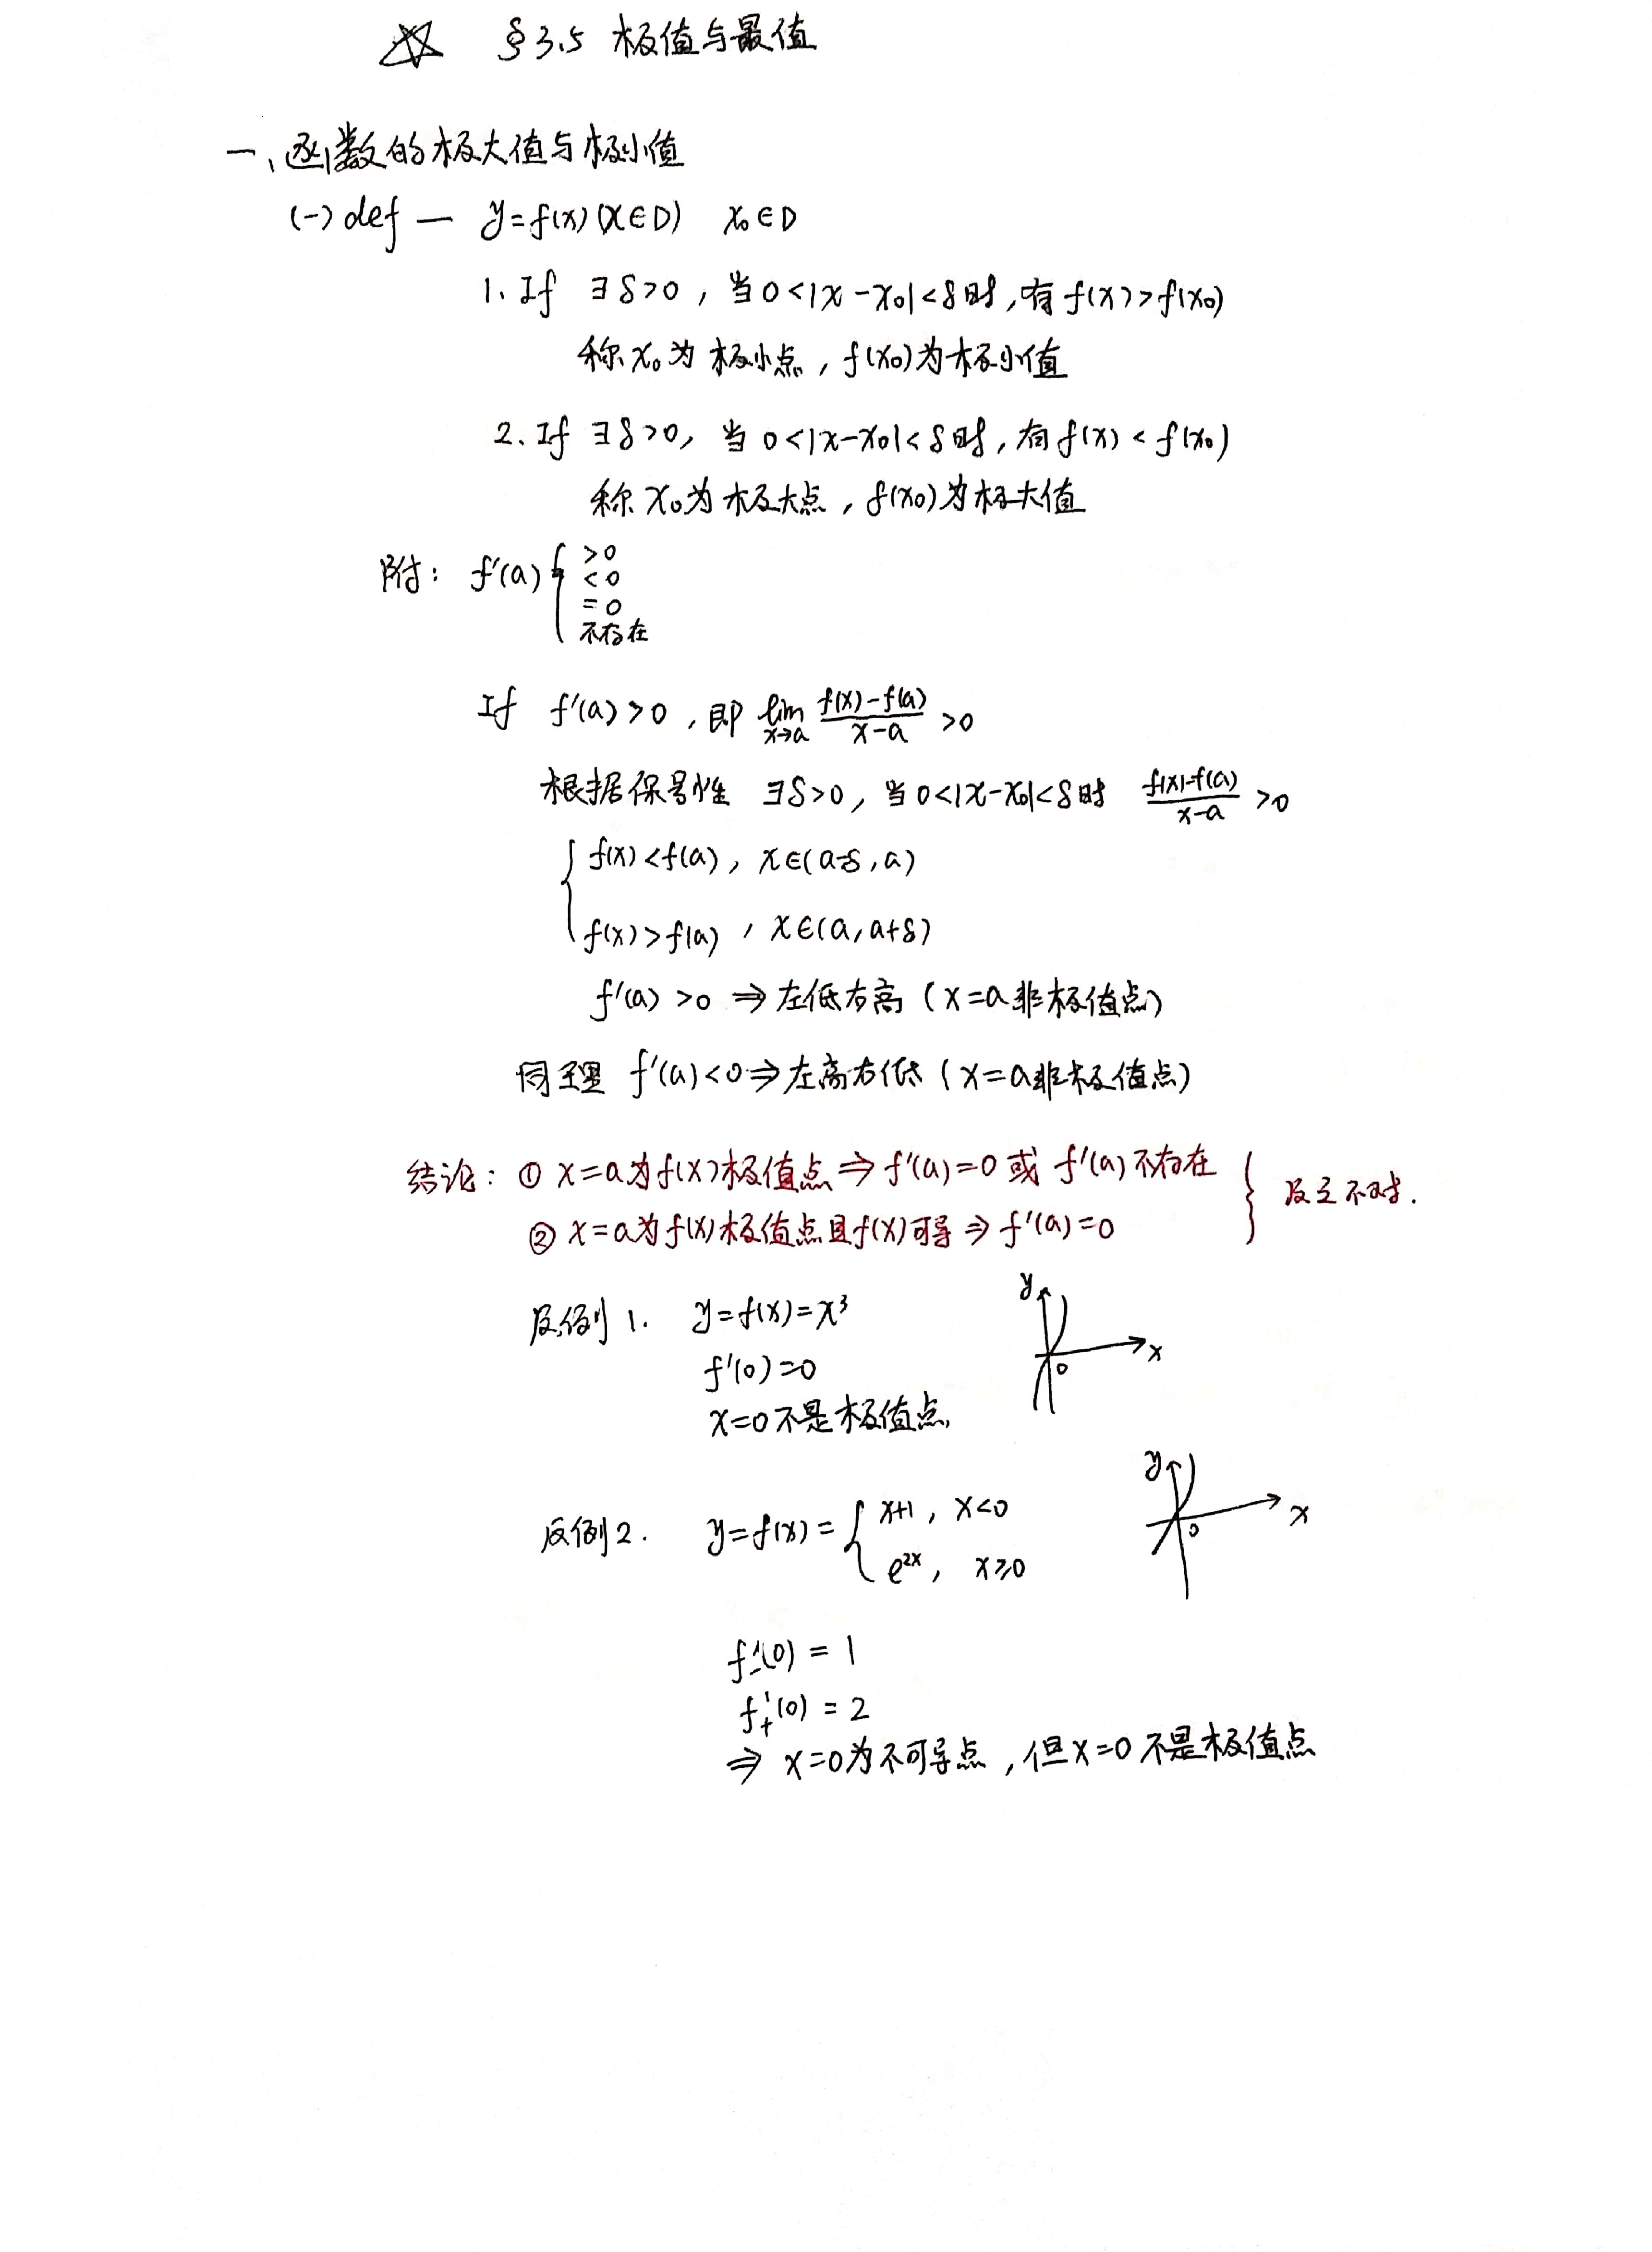 §3.5 极值与最值
一、函数的极大值与极小值
(一) def — y=f(x) (x∈D) x₀∈D
1. If ∃δ>0, 当0<|x-x₀|<δ时, 有f(x)>f(x₀)
称x₀为极小点, f(x₀)为极小值
2. If ∃δ>0, 当0<|x-x₀|<δ时, 有f(x)<f(x₀)
称x₀为极大点, f(x₀)为极大值
附: f'(a) { >0
<0
=0
不存在
If f'(a)>0, 即 lim_{x→a} (f(x)-f(a))/(x-a) >0
根据保号性 ∃δ>0, 当0<|x-x₀|<δ时 (f(x)-f(a))/(x-a) >0
{ f(x)<f(a), x∈(a-δ, a)
f(x)>f(a), x∈(a, a+δ)
f'(a)>0 ⇒ 左低右高 (x=a非极值点)
同理 f'(a)<0 ⇒ 左高右低 (x=a非极值点)
结论: ① x=a为f(x)极值点 ⇒ f'(a)=0 或 f'(a)不存在
② x=a为f(x)极值点且f(x)可导 ⇒ f'(a)=0
} 反之不对.
反例1. y=f(x)=x³
f'(0)=0
x=0不是极值点.
y
x
0
反例2. y=f(x)= { x+1, x<0
e^{2x}, x≥0
y
x
0
f'₋(0)=1
f'₊(0)=2
⇒ x=0为不可导点, 但x=0不是极值点